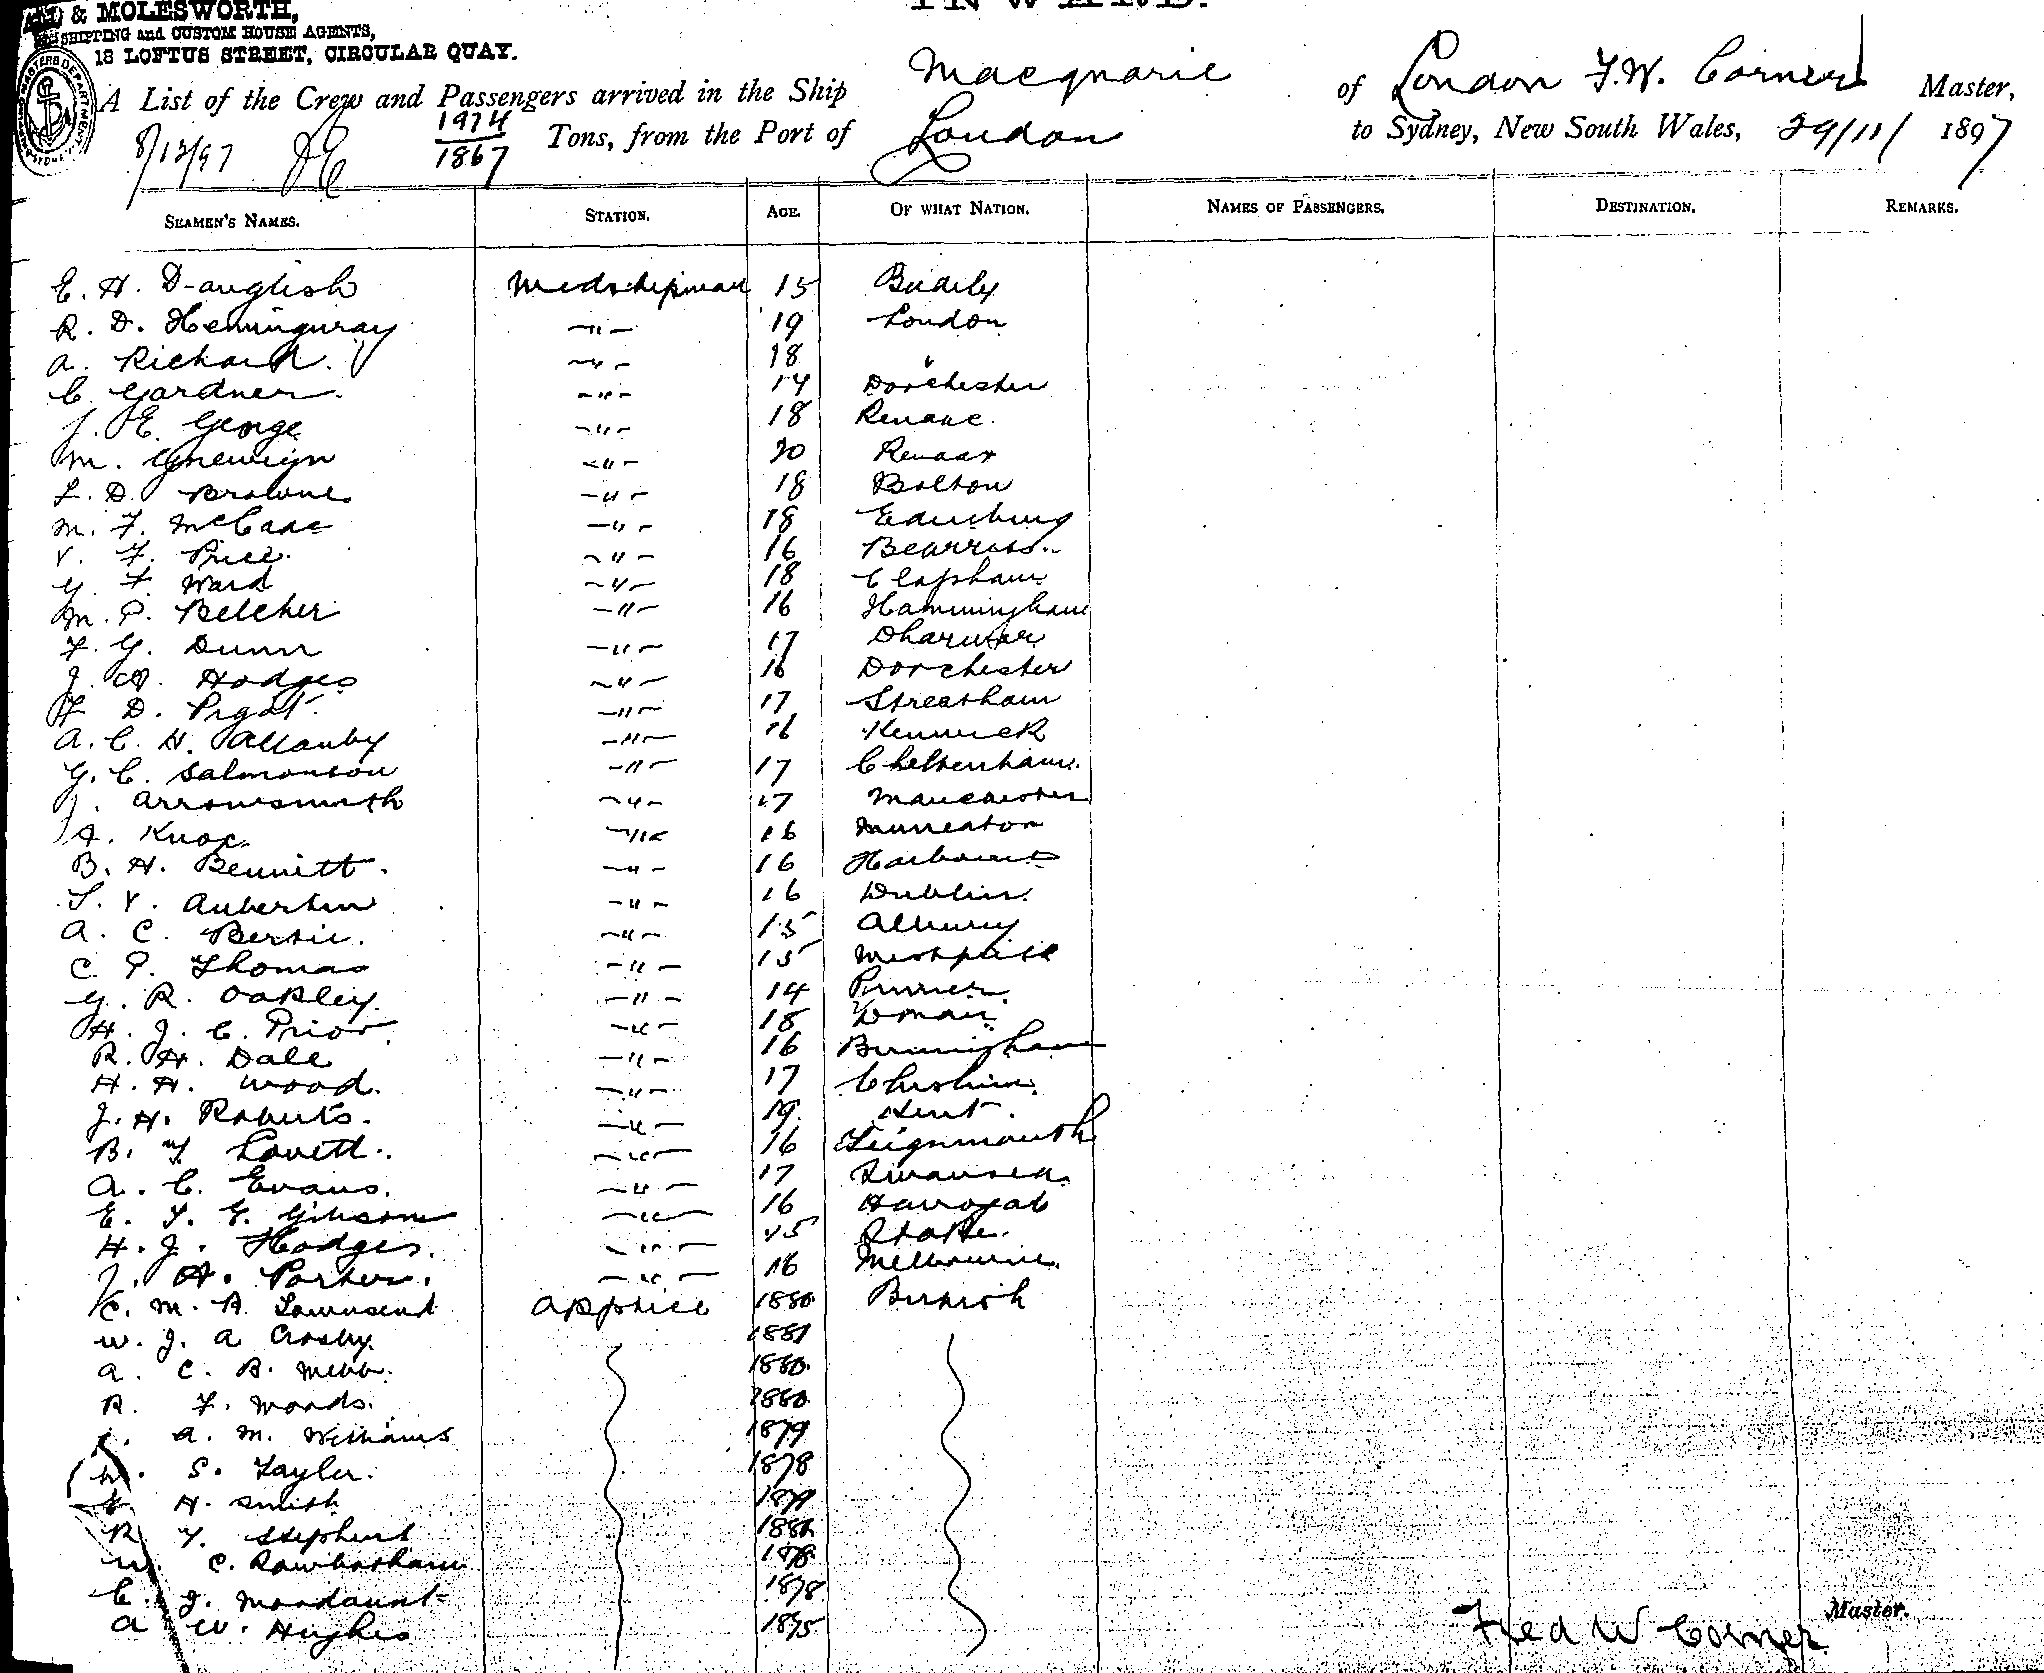 & MOLESWORTH,
SHIPPING and CUSTOM HOUSE AGENTS,
18 LOFTUS STREET, CIRCULAR QUAY.
INWARD.
A List of the Crew and Passengers arrived in the Ship Macquarie of London F.W. Corner Master,
8/12/97 1974/1867 Tons, from the Port of London to Sydney, New South Wales, 29/11/ 1897
SEAMEN'S NAMES. STATION. AGE. OF WHAT NATION. NAMES OF PASSENGERS. DESTINATION. REMARKS.
E. H. Danglish Midshipman 15
R. D. Hemingway -"- 19 London
A. Richard -"- 18 "
C. Gardner -"- 14 Dorchester
J. E. George -"- 18
M. -"- 20
L. D. Browne -"- 18 Bolton
M. F. McCaac -"- 18 Edinburg
V. F. Price -"- 16
G. F. Ward -"- 18 Clapham
M. P. Belcher -"- 16 Hammingham
F. G. Dunn -"- 17 Dharwar
J. A. Hodges -"- 16 Dorchester
H. D. -"- 17 Streatham
A. C. H. Allanby -"- 16
G. C. Salmonson -"- 17 Cheltenham
J. Arrowsmith -"- 17 Manchester
A. Knox -"- 16 Nuneaton
B. H. Bennitt. -"- 16
S. V. Aubertin -"- 16 Dublin
A. C. Bertie. -"- 15 Albury
C. P. Thomas -"- 15
G. R. Oakley. -"- 14 Pinner
H. J. C. Prior -"- 18
R. H. Dale -"- 16 Birmingham
H. H. Wood. -"- 17 Cheshire
J. H. Roberts. -"- 19 Kent.
B. Y Lovett. -"- 16 Teignmouth
A. C. Evans. -"- 17 Swansea.
E. S. G. Gibson -"- 16 Harrogate
H. J. Hodges. -"- 15 Stoke.
J. H. Porter. -"- 16 Melbourne.
C. M. A. Townsend apptice 1880 British
W. J. A Crosby. 1881
A. C. B. Webb. 1880
R. F. Woods. 1880
A. M. Williams 1879
W. S. Tayler. 1878
H. Smith 1879
R Y. Stephens
W. C. Rowbotham 1878
C. J. Mordaunt 1878
A W. Hughes 1875
Fred W Corner Master.